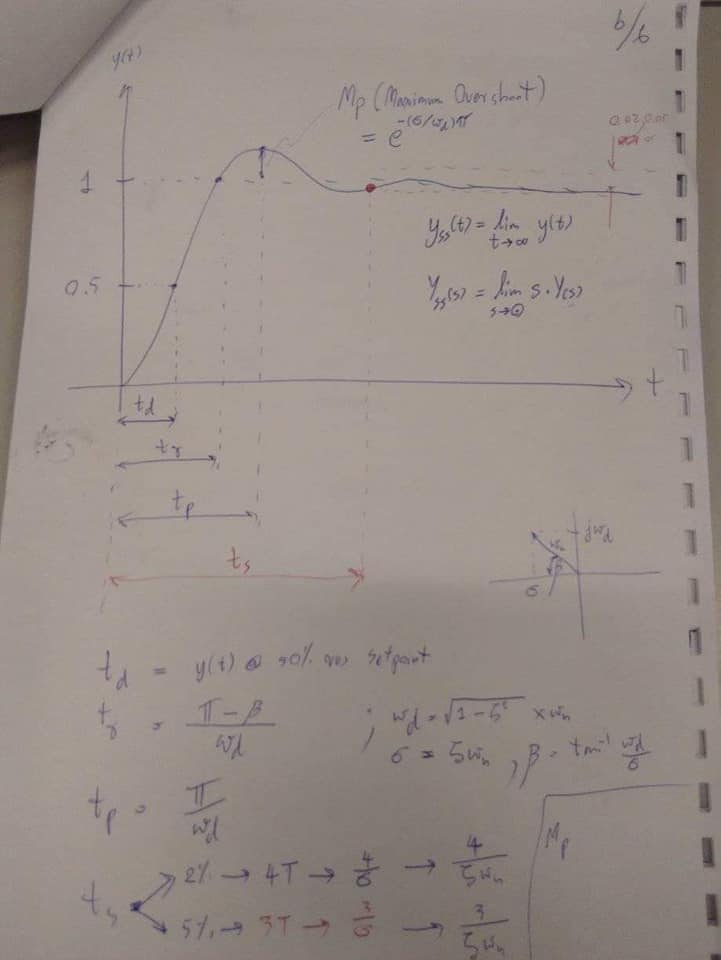 6/6
y(t)
Mp (Maximum Overshoot)
= e^-(σ/ωd)π
0.02, 0.05
1
yss(t) = lim t→∞ y(t)
0.5
Yss(s) = lim s→0 s·Y(s)
t
td
tr
tp
ts
jωd
ωn
β
σ
td = y(t) @ 50% setpoint
tr = π-β/ωd ; ωd = √1-ζ² × ωn
σ = ζωn , β = tan⁻¹ ωd/σ
tp = π/ωd
Mp
ts 2% → 4T → 4/σ → 4/ζωn
5% → 3T → 3/σ → 3/ζωn